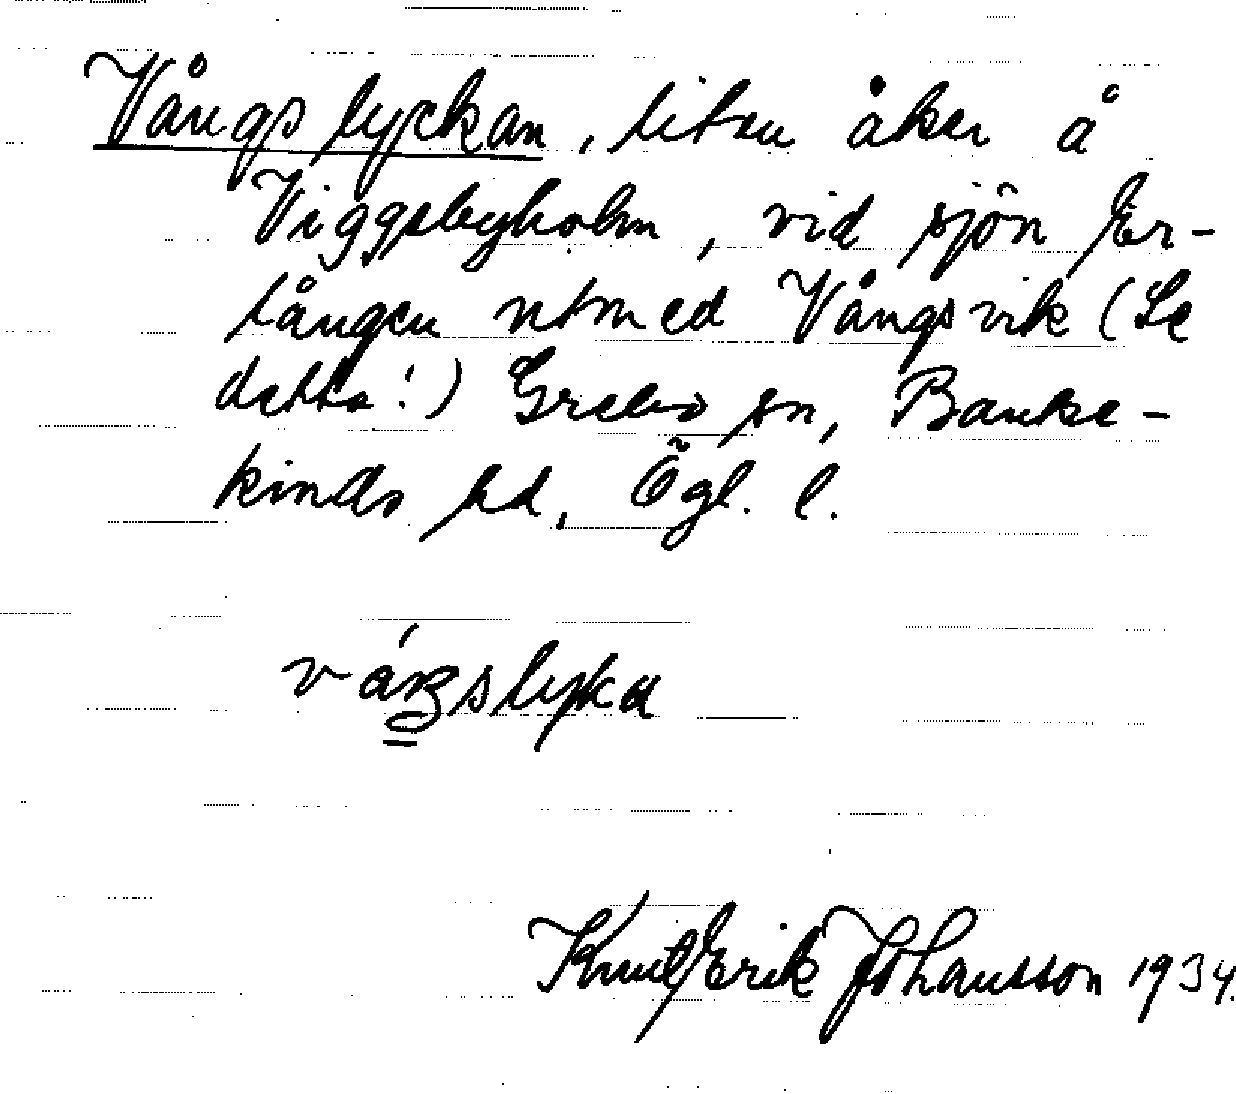 Vångslyckan, liten åker å
Viggebyholm, vid sjön Er-
lången utmed Vångsvik (Se
detta!) Grebo sn, Banke-
kinds hd, Ögl. l.
Knut Erik Johansson 1934.